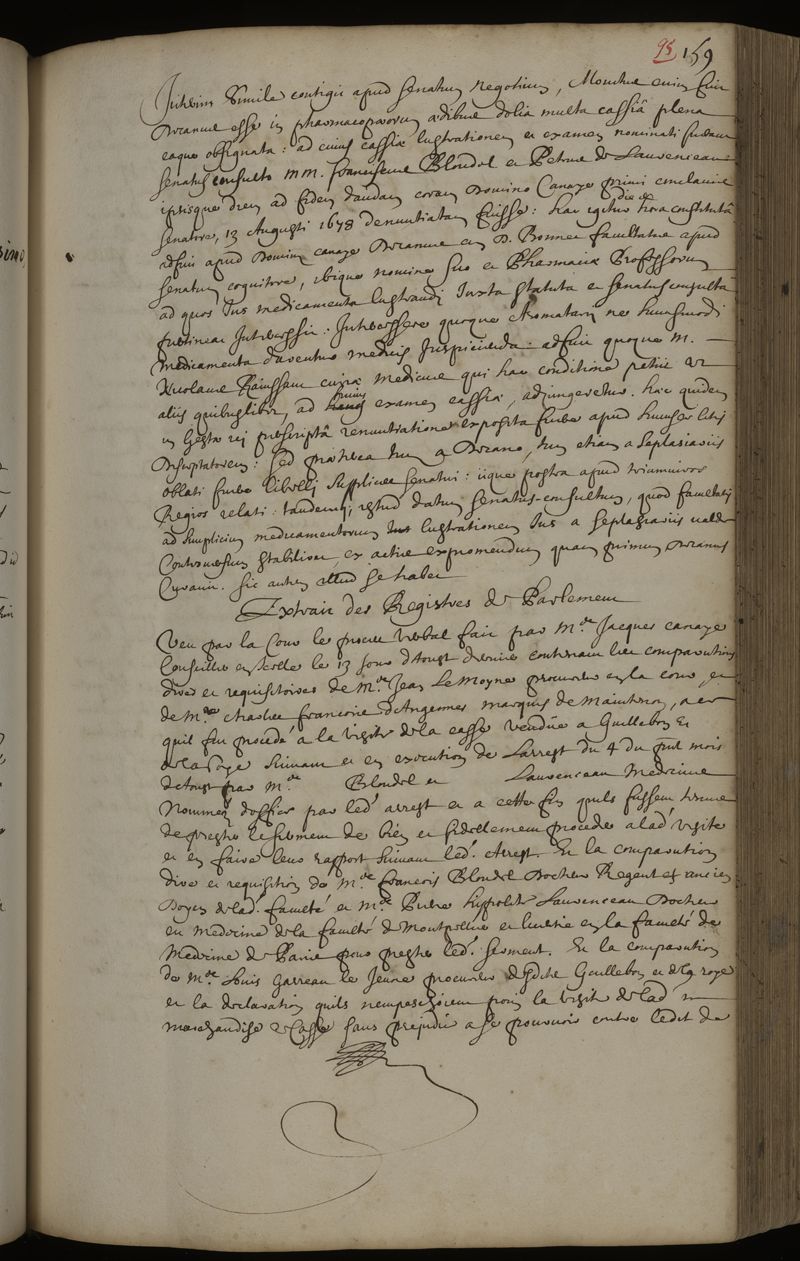 95 159
Interim Simile contigit apud Senatum negotium, Monitus enim fuit
Decanus esse in pharmacopæorum ædibus dolia multa cassiâ plena
eaque obsignata : ad cuius cassiæ lustrationem et examen nominati fuerant
Senatus consulto MM. franciscus Blondel et Petrus de Lauvenceau
ipsisque diem ad fidem dandam coram Domino Canaye primi
Senatore, 13 Augusti 1678 denuntiatam fuisse : hac igitur die et hora constitutâ
adfuit apud Dominum canaye Decanus cum D. Bonnet facultatis apud
Senatum cognitore, ibique nomine suo et Pharmaciæ Professorum
ad quos Jus medicamenta lustrandi Juxta statuta et senatusconsulta
pertineat Intercessit : Intercessere quoque Aromatarii ne huiusmodi
medicamenta a medicis Inspicienda : adfuit quoque M.
Nicolaus Rainssant curiæ Medicus qui hac conditione petiit ut
aliis quibuslibet, ad huius examen cassiæ, adjungeretur. hæc quidem
in gesta rei præscriptâ renuntiatione exposita fuere apud huiusce litis
Disceptatorem : sed præterea tum a Decano, tum etiam a Seplasiariis
oblati fuere libelli supplices Senatui : iique postea apud triumviros
Regios relati : tandemque istud datum Senatus-consultum, quod facultatis
ad simplicium medicamentorum lustrationem Jus a seplasiariis valde
Controversum stabilivit, ex actis expromendum quam primum Decanus
Curavit. sic autem illud se habet
Extrait des Registres de Parlement
Veu par la Cour le proces verbal fait par M.re Jacques canaye
Conseiller en icelle le 13 jour d'Aoust dernier contenant les comparutions
dires et requisitoires de M.re Jean Le Moyne procureur en la cour, et
de M.re charles francois d'Angennes marquis de Maintenon, a ce
quil fut procedé a la visite de la casse vendue a Guillebon et
de la Roye suivant et en execution de Larrest du 4 du pnt mois
d'Aoust par M.re Blondel et Lauvenceau Medecins
Nommez d'office par led' arrest et a cette fin quils fussent tenus
de prester le serment de bien et fidellement proceder a lad' visite
et en faire leur rapport suivant led. Arrest. Et la comparution
dire et requisition de M.re francois Blondel Docteur Regent et ancien
Doyen de lad. faculté et M.re Pierre hyppolite Lauvenceau Docteur
en Medecine de la faculté de Montpellier et licentié en la faculté de
Medecine de Paris pour prester led. serment. Et la comparution
de M.re Louis Garreau le Jeune procureur desdits Guillebon et de la roye
et la declaration quils nempeschoient point la visite de lad'
marchandise de Casse sans prejudice a se pourvoir contre ledit de